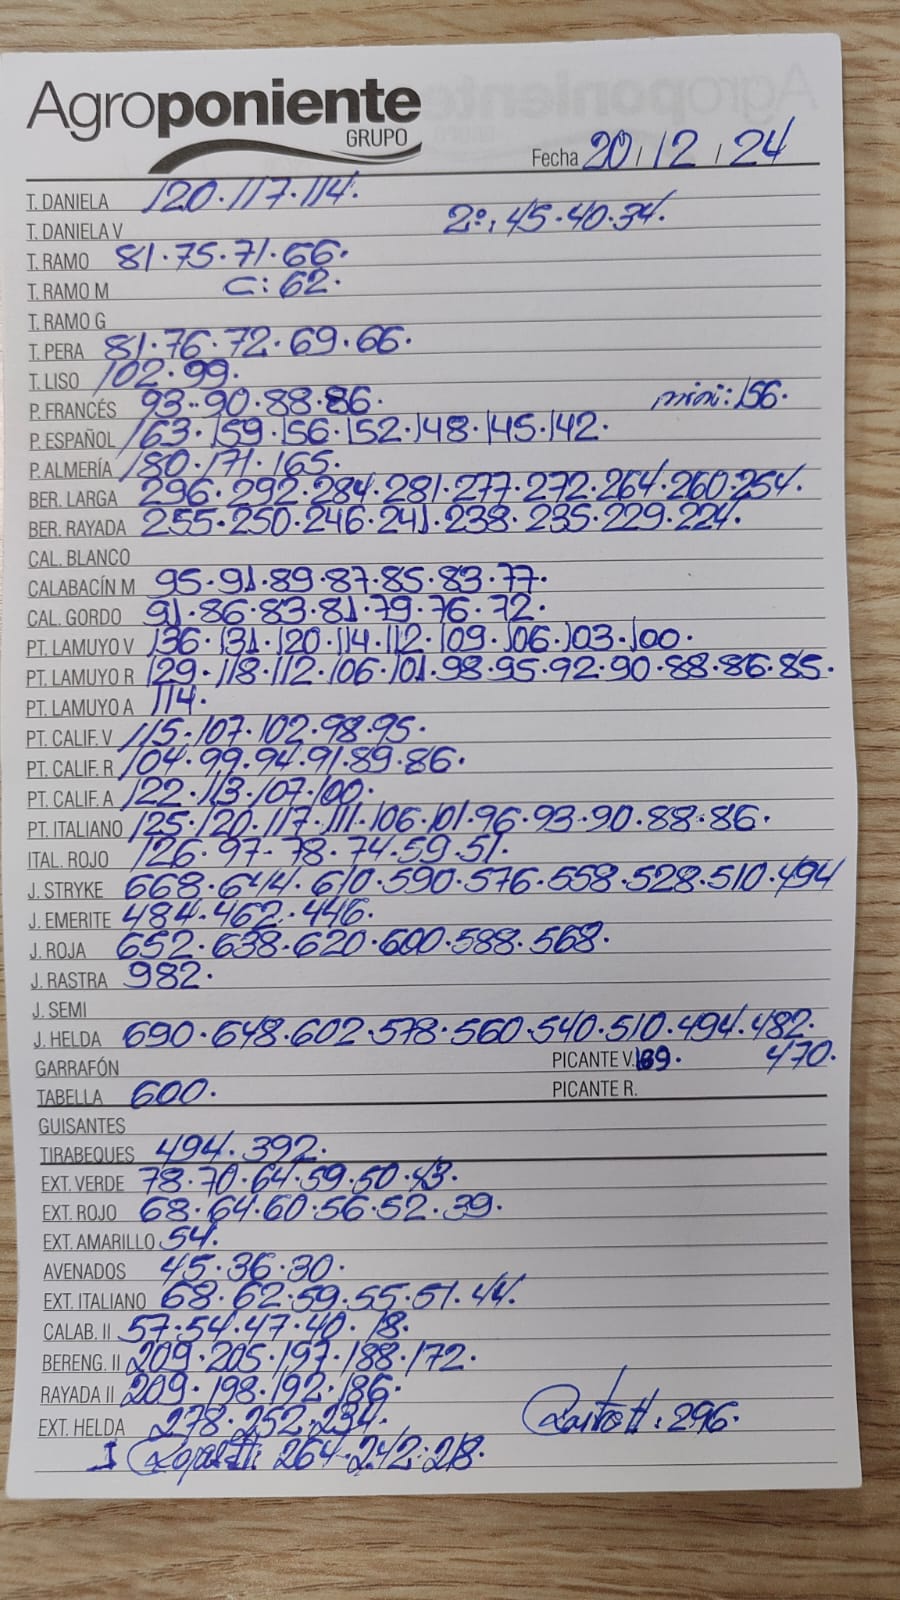 Agroponiente
GRUPO
Fecha 20/12/24
T. DANIELA 120.117.114.
T. DANIELA V 2º: 45.40.34.
T. RAMO 81.75.71.66.
T. RAMO M C: 62.
T. RAMO G
T. PERA 81.76.72.69.66.
T. LISO 102.99.
P. FRANCÉS 93.90.88.86. mini: 156.
P. ESPAÑOL 163.159.156.152.148.145.142.
P. ALMERÍA 180.171.165.
BER. LARGA 296.292.284.281.277.272.264.260.254.
BER. RAYADA 255.250.246.241.238.235.229.224.
CAL. BLANCO
CALABACÍN M 95.91.89.87.85.83.77.
CAL. GORDO 91.86.83.81.79.76.72.
PT. LAMUYO V 136.131.120.114.112.109.106.103.100.
PT. LAMUYO R 129.118.112.106.101.98.95.92.90.88.86.85.
PT. LAMUYO A 114.
PT. CALIF. V 115.107.102.98.95.
PT. CALIF. R 104.99.94.91.89.86.
PT. CALIF. A 122.113.107.100.
PT. ITALIANO 125.120.117.111.106.101.96.93.90.88.86.
ITAL. ROJO 126.97.78.74.59.51.
J. STRYKE 668.644.610.590.576.558.528.510.494
J. EMERITE 484.462.446.
J. ROJA 652.638.620.600.588.568.
J. RASTRA 982.
J. SEMI
J. HELDA 690.648.602.578.560.540.510.494.482.
GARRAFÓN PICANTE V. 470.
TABELLA 600. PICANTE R.
GUISANTES
TIRABEQUES 494.392.
EXT. VERDE 78.70.64.59.50.43.
EXT. ROJO 68.64.60.56.52.39.
EXT. AMARILLO 54.
AVENADOS 45.36.30.
EXT. ITALIANO 68.62.59.55.51.44.
CALAB. II 57.54.47.40.18.
BERENG. II 209.205.197.188.172.
RAYADA II 209.198.192.186.
EXT. HELDA 278.252.234. 296.
264.242.218.